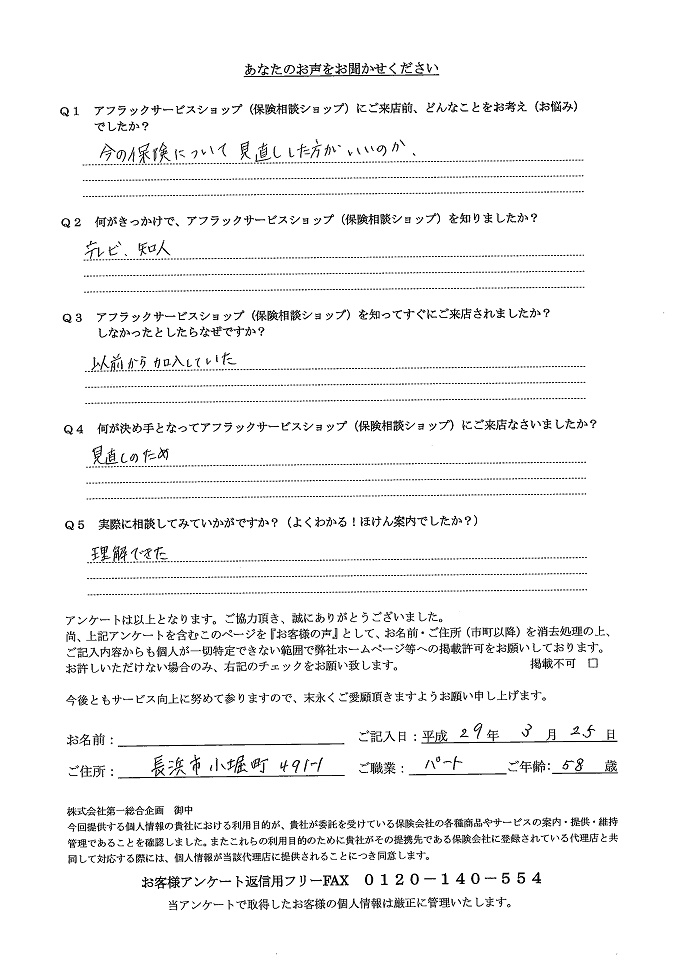 あなたのお声をお聞かせください
Q1 アフラックサービスショップ（保険相談ショップ）にご来店前、どんなことをお考え（お悩み）
でしたか？
今の保険について見直しした方がいいのか、
Q2 何がきっかけで、アフラックサービスショップ（保険相談ショップ）を知りましたか？
テレビ、知人
Q3 アフラックサービスショップ（保険相談ショップ）を知ってすぐにご来店されましたか？
しなかったとしたらなぜですか？
以前から加入していた
Q4 何が決め手となってアフラックサービスショップ（保険相談ショップ）にご来店なさいましたか？
見直しのため
Q5 実際に相談してみていかがですか？（よくわかる！ほけん案内でしたか？）
理解できた
アンケートは以上となります。ご協力頂き、誠にありがとうございました。
尚、上記アンケートを含むこのページを『お客様の声』として、お名前・ご住所（市町以降）を消去処理の上、
ご記入内容からも個人が一切特定できない範囲で弊社ホームページ等への掲載許可をお願いしております。
お許しいただけない場合のみ、右記のチェックをお願い致します。 掲載不可 □
今後ともサービス向上に努めて参りますので、末永くご愛顧頂きますようお願い申し上げます。
お名前： ご記入日：平成 29年 3月 25日
ご住所： 長浜市小堀町 491-1 ご職業： パート ご年齢： 58 歳
株式会社第一総合企画 御中
今回提供する個人情報の貴社における利用目的が、貴社が委託を受けている保険会社の各種商品やサービスの案内・提供・維持
管理であることを確認しました。またこれらの利用目的のために貴社がその提携先である保険会社に登録されている代理店と共
同して対応する際には、個人情報が当該代理店に提供されることにつき同意します。
お客様アンケート返信用フリーFAX 0120－140－554
当アンケートで取得したお客様の個人情報は厳正に管理いたします。